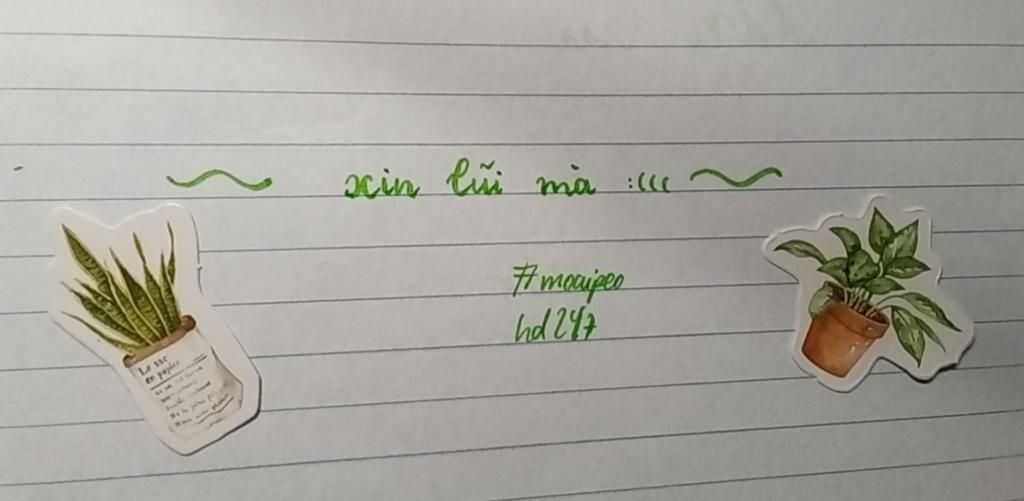 ~ xin lũi mà :((( ~
#moaipeo
hd247
Le sac
en papier